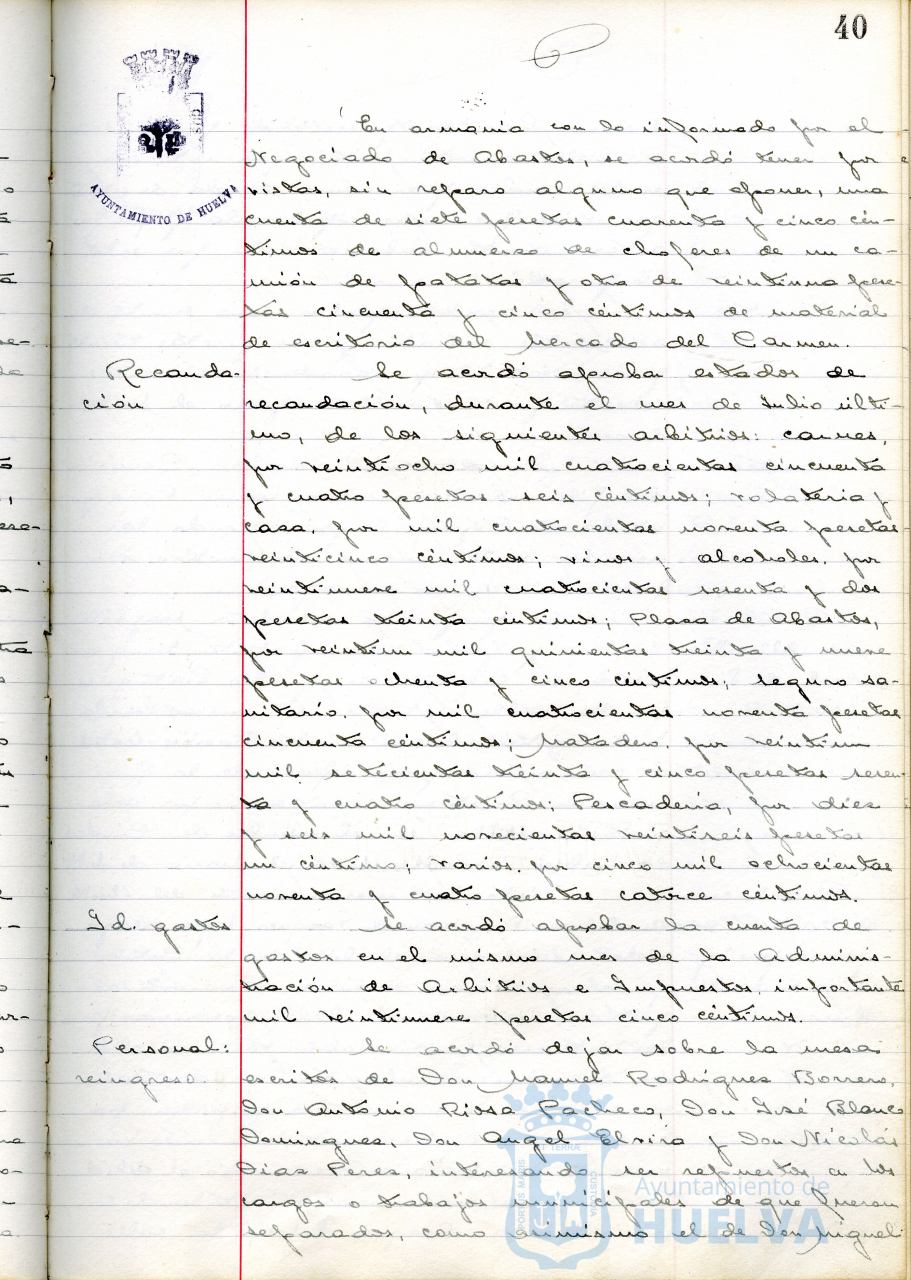 40
AYUNTAMIENTO DE HUELVA
En armonía con lo informado por el
Negociado de Abastos, se acordó tener por
vistas, sin reparo alguno que oponer, una
cuenta de siete pesetas cuarenta y cinco cén-
timos de almuerzo de choferes de un ca-
mión de patatas y otra de veintiuna pese-
tas cincuenta y cinco céntimos de material
de escritorio del Mercado del Carmen.
Recauda- Se acordó aprobar estados de
ción recaudación, durante el mes de Julio últi-
mo, de los siguientes arbitrios: carnes,
por veintiocho mil cuatrocientas cincuenta
y cuatro pesetas seis céntimos; volatería y
casa, por mil cuatrocientas noventa pesetas
veinticinco céntimos; vinos y alcoholes, por
veintinueve mil cuatrocientas sesenta y dos
pesetas treinta céntimos; Plasa de Abastos,
por veintiun mil quinientas treinta y nueve
pesetas ochenta y cinco céntimos; seguro sa-
nitario, por mil cuatrocientas noventa pesetas
cincuenta céntimos; Matadero, por veintiun
mil setecientas treinta y cinco pesetas sesen-
ta y cuatro céntimos; Pescadería, por dies
y seis mil novecientas veintiseis pesetas
un céntimo; varios, por cinco mil ochocientas
noventa y cuatro pesetas catorce céntimos.
Id. gastos Se acordó aprobar la cuenta de
gastos en el mismo mes de la Adminis-
tración de Arbitrios e Impuestos, importante
mil veintinueve pesetas cinco céntimos.
Personal: Se acordó dejar sobre la mesa
reingreso. escritos de Don Manuel Rodríguez Borrero,
Don Antonio Riosa Pacheco, Don José Blanco
Domingues, Don Angel Elvira y Don Nicolás
Dias Peres, interesando ser repuestos en los
cargos o trabajos municipales de que fueron
separados, como asimismo el de Don Miguel
Ayuntamiento de
HUELVA